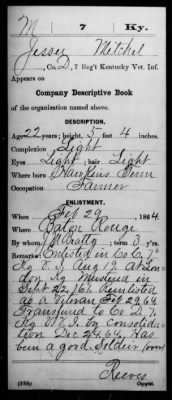 M 7 Ky.
Jesse Mitchel
, Co. D, 7 Reg't Kentucky Vet. Inf.
Appears on
Company Descriptive Book
of the organization named above.
DESCRIPTION.
Age 22 years; height, 5 feet 4 inches.
Complexion Light
Eyes Light; hair Light
Where born Hawkins Tenn
Occupation Farmer
ENLISTMENT.
When Feb 29, 1864.
Where Baton Rouge
By ; term 3 y'rs.
Remarks: Enlisted in Co C, 7"
Ky V. I. Aug 19, at Lon
don Ky. Mustered in
Sept 22, 61. Reenlisted
as a Veteran Feb 29, 64
Transfered to Co D, 7,
Ky V. I. by consolida
tion Dec 24 64. Has
been a good Soldier (over)
Reeves
Copyist.